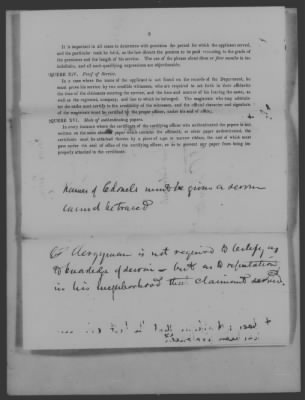 3
It is important in all cases to determine with precision the period for which the applicant served,
and the particular rank he held, as the law directs the pension to be paid according to the grade of
the pensioner and the length of his service. The use of the phrase about three or four months is too
indefinite, and all such qualifying expressions are objectionable.
QUERE XIV. Proof of Service.
In a case where the name of the applicant is not found on the records of the Department, he
must prove his service by two credible witnesses, who are required to set forth in their affidavits
the time of the claimants entering the service, and the time and manner of his leaving the same, as
well as the regiment, company, and line to which he belonged. The magistrate who may administer
the oaths must certify to the credibility of the witnesses, and the official character and signature
of the magistrate must be certified by the proper officer, under his seal of office.
QUERE XVI. Mode of authenticating papers.
In every instance where the certificate of the certifying officer who authenticates the papers is not
written on the same sheet of paper which contains the affidavit, or other paper authenticated, the
certificate must be attached thereto by a piece of tape or narrow ribbon, the ends of which must
pass under the seal of office of the certifying officer, so as to prevent any paper from being im-
properly attached to the certificate.
names of Colonels must be given &
cannot be traced
Clergyman is not required to testify as
to knowledge of service - but as to reputation
in his neighborhood that Claimant served.